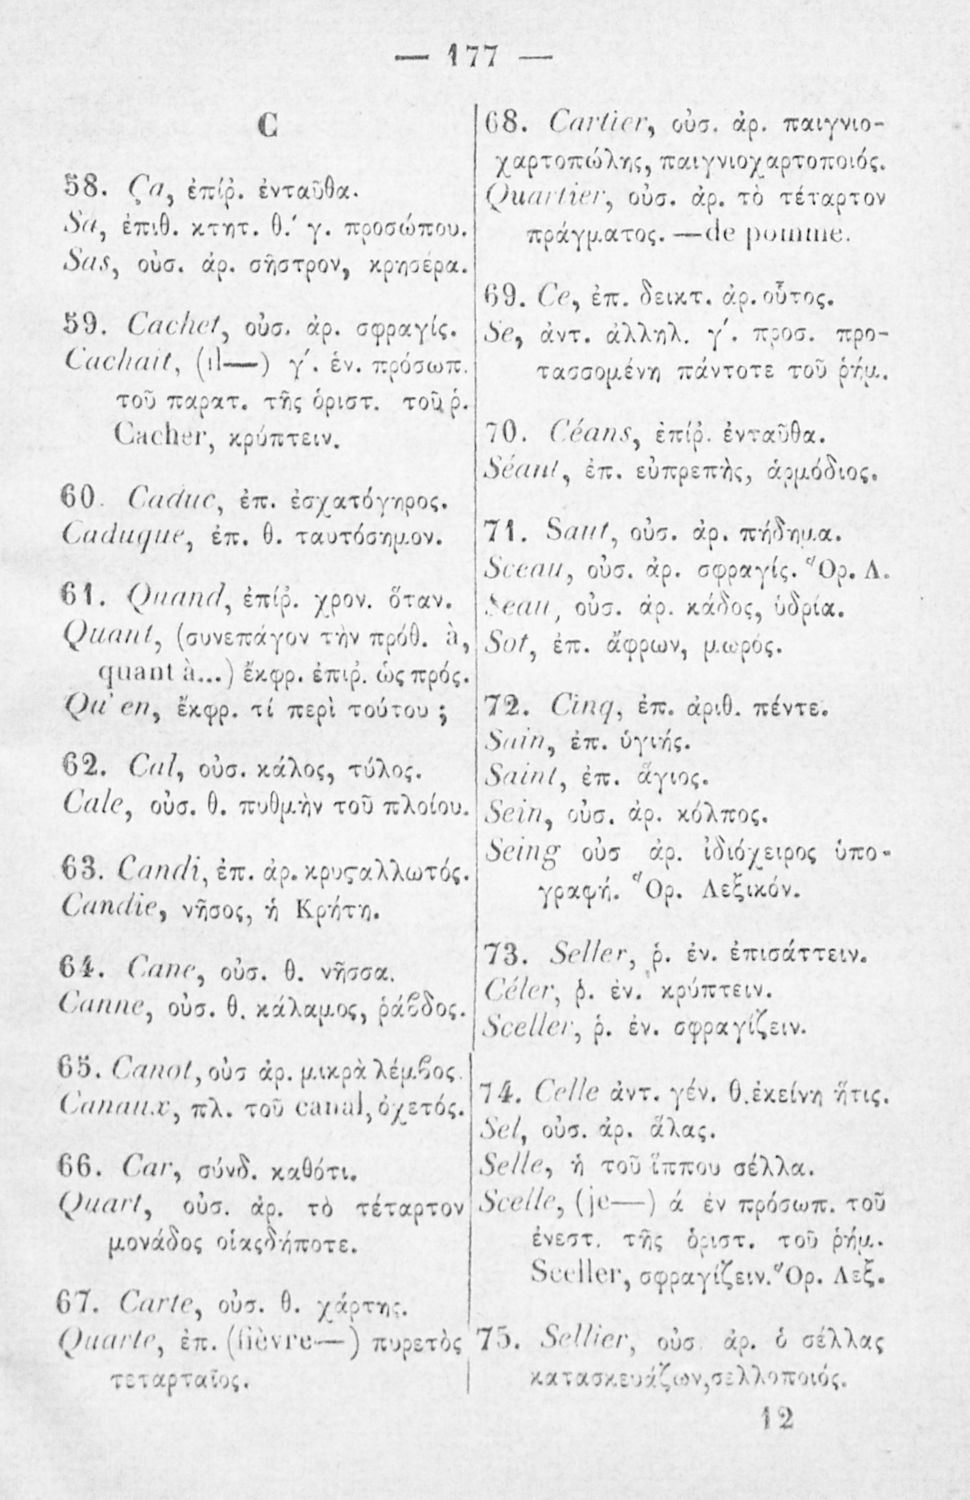 — 177 —
C
58. Ça, ἐπίρ. ἐνταῦθα.
Sa, ἐπιθ. κτητ. θ.΄ γ. προσώπου.
Sas, οὐσ. ἀρ. σῆστρον, κρησέρα.
59. Cachet, οὐσ. ἀρ. σφραγίς.
Cachait, (il—) γ΄. ἑν. πρόσωπ.
τοῦ παρατ. τῆς ὁριστ. τοῦ ῥ.
Cacher, κρύπτειν.
60. Caduc, ἐπ. ἐσχατόγηρος.
Caduque, ἐπ. θ. ταυτόσημον.
61. Quand, ἐπίῤ. χρον. ὅταν.
Quant, (συνεπάγον τὴν πρόθ. à,
quant à...) ἔκφρ. ἐπιρ. ὡς πρός.
Qu' en, ἔκφρ. τί περὶ τούτου ;
62. Cal, οὐσ. κάλος, τύλος.
Cale, οὐσ. θ. πυθμὴν τοῦ πλοίου.
63. Candi, ἐπ. ἀρ. κρυςαλλωτός.
Candie, νῆσος, ἡ Κρήτη.
64. Cane, οὐσ. θ. νῆσσα.
Canne, οὐσ. θ. κάλαμος, ῥάϐδος.
65. Canot, οὐσ ἀρ. μικρὰ λέμϐος.
Canaux, πλ. τοῦ canal, ὀχετός.
66. Car, σύνδ. καθότι.
Quart, οὐσ. ἀρ. τὸ τέταρτον
μονάδος οἱαςδήποτε.
67. Carte, οὐσ. θ. χάρτης.
Quarte, ἐπ. (fièvre—) πυρετὸς
τεταρταῖος.
68. Cartier, οὐσ. ἀρ. παιγνιο-
χαρτοπώλης, παιγνιοχαρτοποιός.
Quartier, οὐσ. ἀρ. τὸ τέταρτον
πράγματος. —de pomme.
69. Ce, ἐπ. δεικτ. ἀρ. οὗτος.
Se, ἀντ. ἀλληλ. γ΄. προσ. προ-
τασσομένη πάντοτε τοῦ ῥήμ.
70. Céans, ἐπίῤ. ἐνταῦθα.
Séant, ἐπ. εὐπρεπὴς, ἁρμόδιος.
71. Saut, οὐσ. ἀρ. πήδημα.
Sceau, οὐσ. ἀρ. σφραγίς. Ὅρ. Λ.
Seau, οὐσ. ἀρ. κάδος, ὑδρία.
Sot, ἐπ. ἄφρων, μωρός.
72. Cinq, ἐπ. ἀριθ. πέντε.
Sain, ἐπ. ὑγιής.
Saint, ἐπ. ἅγιος.
Sein, οὐσ. ἀρ. κόλπος.
Seing οὐσ ἀρ. ἰδιόχειρος ὑπο-
γραφή. Ὅρ. Λεξικόν.
73. Seller, ῥ. ἐν. ἐπισάττειν.
Céler, ῥ. ἐν. κρύπτειν.
Sceller, ῥ. ἐν. σφραγίζειν.
74. Celle ἀντ. γέν. θ. ἐκείνη ἥτις.
Sel, οὐσ. ἀρ. ἅλας.
Selle, ἡ τοῦ ἵππου σέλλα.
Scelle, (je—) ά ἐν πρόσωπ. τοῦ
ἐνεστ. τῆς ὁριστ. τοῦ ῥήμ.
Sceller, σφραγίζειν. Ὅρ. Λεξ.
75. Sellier, οὐσ. ἀρ. ὁ σέλλας
κατασκευάζων, σελλοποιός.
12